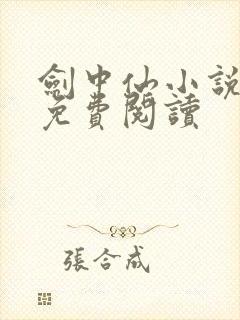 劍中仙小說
免費閱讀
張合成